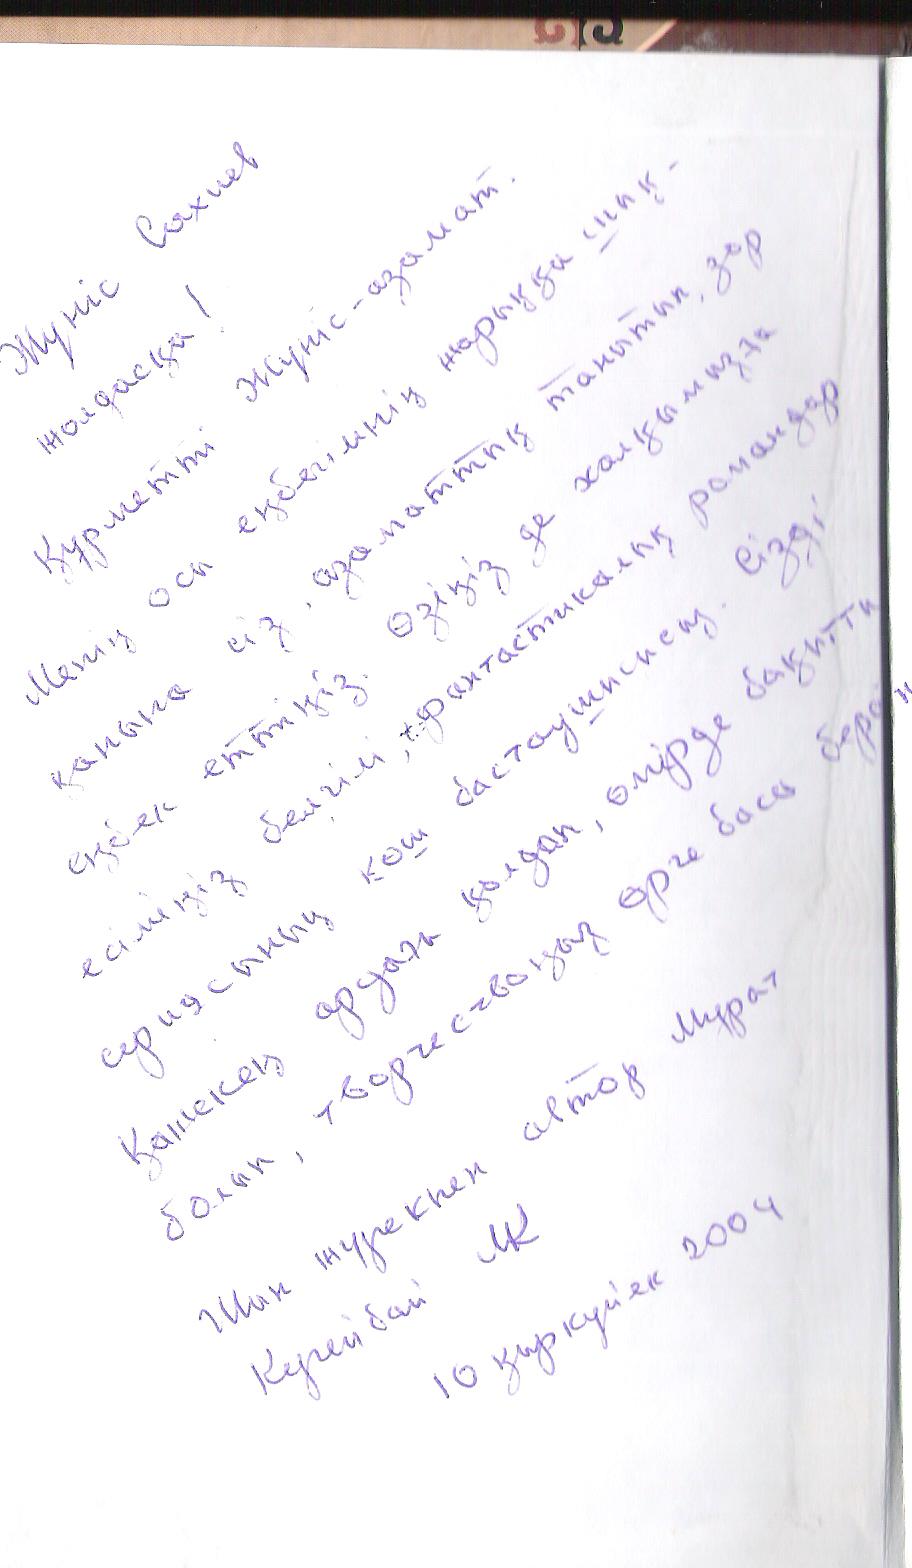 Жүніс Сахиев
жолдасқа!
Құрметті Жүніс-азамат.
Менің осы еңбегімнің жарыққа шық-
қанына сіз, азаматтық танытып, зор
еңбек еттіңіз. Өзіңіз де халқымызға
есіміңіз белгілі, фантастикалық романдар
сериясының көш бастаушысысыз. Сізді,
Қажекең ардағы қолдап, өмірде бақытты
болып, творчествоңыз өрге баса берсін
Шын жүрекпен автор Мұрат
Күгейбай МК
10 қыркүйек 2004